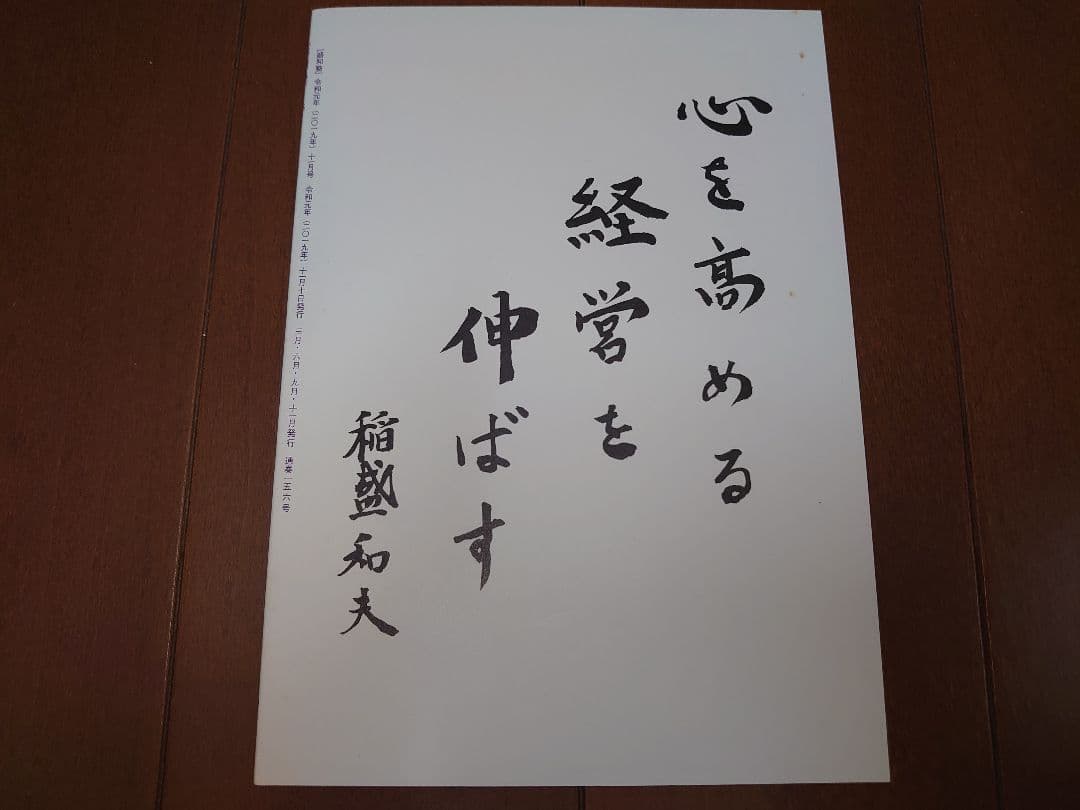 心を高める
経営を
伸ばす
稲盛和夫
【盛和塾】 令和元年(二〇一九年)十一月号 令和元年(二〇一九年)十一月十日発行 三月・六月・九月・十一月発行 通巻一五六号